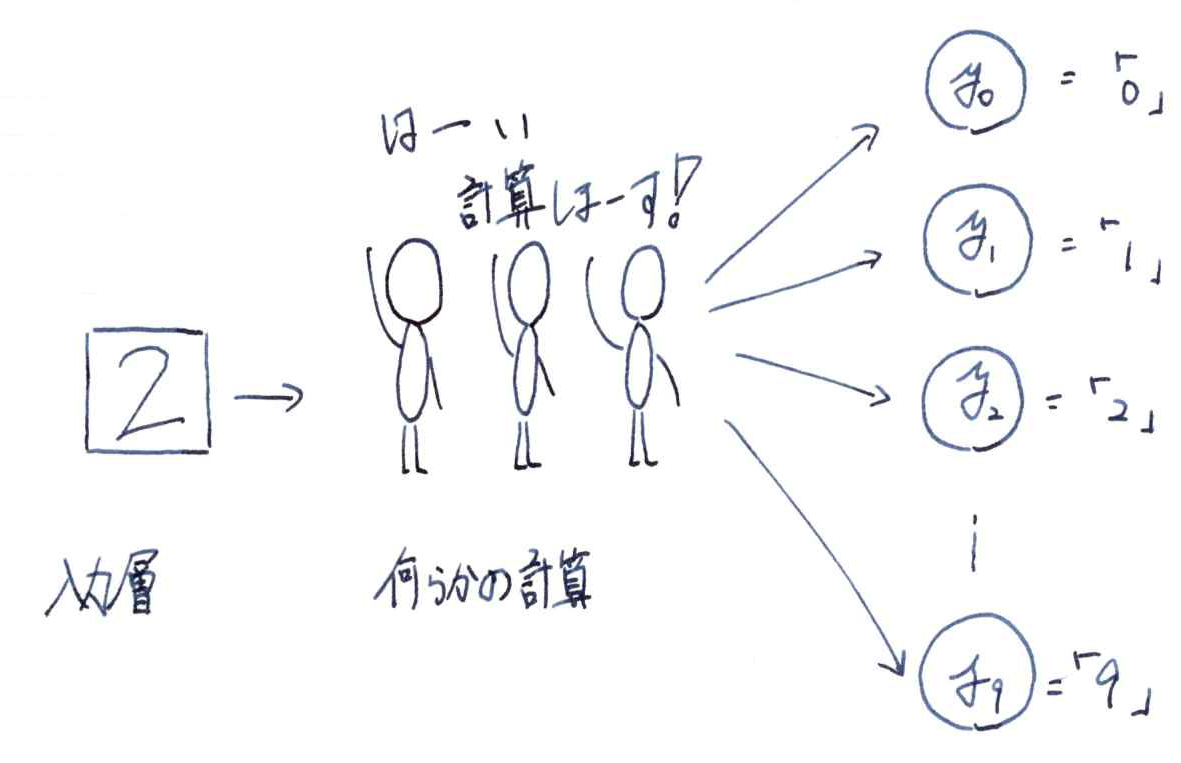 はーい
計算しまーす!
2
入力層
何らかの計算
y₀ = 「0」
y₁ = 「1」
y₂ = 「2」
y₉ = 「9」